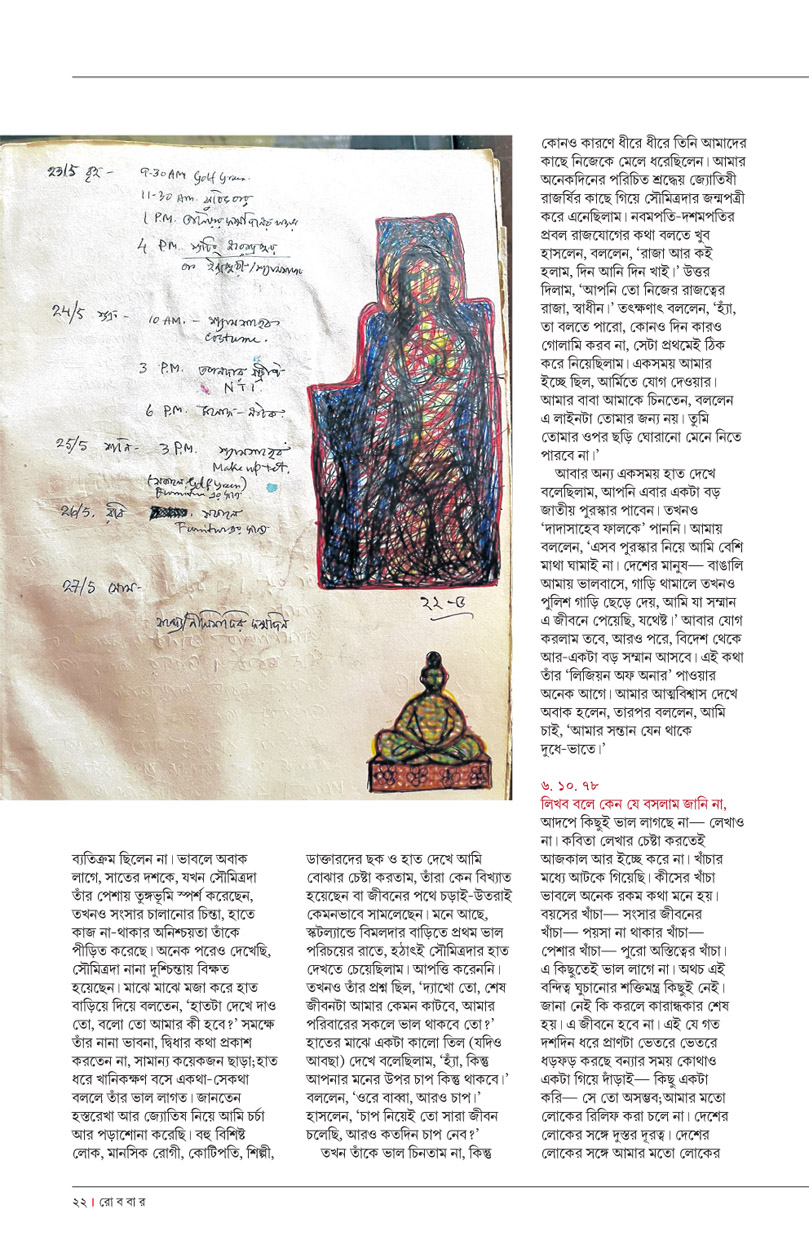 23/5 বৃহ - 9-30 AM Golf Green.
11-30 AM.
1 P.M.
4 P.M.
24/5 শুক্র - 10 AM. -
Costume.
3 P.M.
NT1.
6 P.M.
25/5 শনি - 3 P.M.
Make up test.
Golf Green)
Furniture এর জন্য
26/5. রবি
Furniture এর জন্য
27/5 সোম-
জন্মদিন
২২-৩
ব্যতিক্রম ছিলেন না। ভাবলে অবাক
লাগে, সাতের দশকে, যখন সৌমিত্রদা
তাঁর পেশায় তুঙ্গভূমি স্পর্শ করেছেন,
তখনও সংসার চালানোর চিন্তা, হাতে
কাজ না-থাকার অনিশ্চয়তা তাঁকে
পীড়িত করেছে। অনেক পরেও দেখেছি,
সৌমিত্রদা নানা দুশ্চিন্তায় বিক্ষত
হয়েছেন। মাঝে মাঝে মজা করে হাত
বাড়িয়ে দিয়ে বলতেন, ‘হাতটা দেখে দাও
তো, বলো তো আমার কী হবে?’ সমক্ষে
তাঁর নানা ভাবনা, দ্বিধার কথা প্রকাশ
করতেন না, সামান্য কয়েকজন ছাড়া;হাত
ধরে খানিকক্ষণ বসে একথা-সেকথা
বললে তাঁর ভাল লাগত। জানতেন
হস্তরেখা আর জ্যোতিষ নিয়ে আমি চর্চা
আর পড়াশোনা করেছি। বহু বিশিষ্ট
লোক, মানসিক রোগী, কোটিপতি, শিল্পী,
ডাক্তারদের ছক ও হাত দেখে আমি
বোঝার চেষ্টা করতাম, তাঁরা কেন বিখ্যাত
হয়েছেন বা জীবনের পথে চড়াই-উতরাই
কেমনভাবে সামলেছেন। মনে আছে,
স্কটল্যান্ডে বিমলদার বাড়িতে প্রথম ভাল
পরিচয়ের রাতে, হঠাৎই সৌমিত্রদার হাত
দেখতে চেয়েছিলাম। আপত্তি করেননি।
তখনও তাঁর প্রশ্ন ছিল, ‘দ্যাখো তো, শেষ
জীবনটা আমার কেমন কাটবে, আমার
পরিবারের সকলে ভাল থাকবে তো?’
হাতের মাঝে একটা কালো তিল (যদিও
আবছা) দেখে বলেছিলাম, ‘হ্যাঁ, কিন্তু
আপনার মনের উপর চাপ কিন্তু থাকবে।’
বললেন, ‘ওরে বাব্বা, আরও চাপ।’
হাসলেন, ‘চাপ নিয়েই তো সারা জীবন
চলেছি, আরও কতদিন চাপ নেব?’
তখন তাঁকে ভাল চিনতাম না, কিন্তু
কোনও কারণে ধীরে ধীরে তিনি আমাদের
কাছে নিজেকে মেলে ধরেছিলেন। আমার
অনেকদিনের পরিচিত শ্রদ্ধেয় জ্যোতিষী
রাজর্ষির কাছে গিয়ে সৌমিত্রদার জন্মপত্রী
করে এনেছিলাম। নবমপতি-দশমপতির
প্রবল রাজযোগের কথা বলতে খুব
হাসলেন, বললেন, ‘রাজা আর কই
হলাম, দিন আনি দিন খাই।’ উত্তর
দিলাম, ‘আপনি তো নিজের রাজত্বের
রাজা, স্বাধীন।’ তৎক্ষণাৎ বললেন, ‘হ্যাঁ,
তা বলতে পারো, কোনও দিন কারও
গোলামি করব না, সেটা প্রথমেই ঠিক
করে নিয়েছিলাম। একসময় আমার
ইচ্ছে ছিল, আর্মিতে যোগ দেওয়ার।
আমার বাবা আমাকে চিনতেন, বললেন
এ লাইনটা তোমার জন্য নয়। তুমি
তোমার ওপর ছড়ি ঘোরানো মেনে নিতে
পারবে না।’
আবার অন্য একসময় হাত দেখে
বলেছিলাম, আপনি এবার একটা বড়
জাতীয় পুরস্কার পাবেন। তখনও
‘দাদাসাহেব ফালকে’ পাননি। আমায়
বললেন, ‘এসব পুরস্কার নিয়ে আমি বেশি
মাথা ঘামাই না। দেশের মানুষ— বাঙালি
আমায় ভালবাসে, গাড়ি থামালে তখনও
পুলিশ গাড়ি ছেড়ে দেয়, আমি যা সম্মান
এ জীবনে পেয়েছি, যথেষ্ট।’ আবার যোগ
করলাম তবে, আরও পরে, বিদেশ থেকে
আর-একটা বড় সম্মান আসবে। এই কথা
তাঁর ‘লিজিয়ন অফ অনার’ পাওয়ার
অনেক আগে। আমার আত্মবিশ্বাস দেখে
অবাক হলেন, তারপর বললেন, আমি
চাই, ‘আমার সন্তান যেন থাকে
দুধে-ভাতে।’
৬. ১০. ৭৮
লিখব বলে কেন যে বসলাম জানি না,
আদপে কিছুই ভাল লাগছে না— লেখাও
না। কবিতা লেখার চেষ্টা করতেই
আজকাল আর ইচ্ছে করে না। খাঁচার
মধ্যে আটকে গিয়েছি। কীসের খাঁচা
ভাবলে অনেক রকম কথা মনে হয়।
বয়সের খাঁচা— সংসার জীবনের
খাঁচা— পয়সা না থাকার খাঁচা—
পেশার খাঁচা— পুরো অস্তিত্বের খাঁচা।
এ কিছুতেই ভাল লাগে না। অথচ এই
বন্দিত্ব ঘুচানোর শক্তিমন্ত্র কিছুই নেই।
জানা নেই কি করলে কারান্ধকার শেষ
হয়। এ জীবনে হবে না। এই যে গত
দশদিন ধরে প্রাণটা ভেতরে ভেতরে
ধড়ফড় করছে বন্যার সময় কোথাও
একটা গিয়ে দাঁড়াই— কিছু একটা
করি— সে তো অসম্ভব;আমার মতো
লোকের রিলিফ করা চলে না। দেশের
লোকের সঙ্গে দুস্তর দূরত্ব। দেশের
লোকের সঙ্গে আমার মতো লোকের
২২ । রো ব বা র